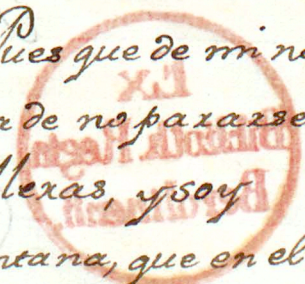 Pues que de mi n
r de no pararse
lleras, y soy
ntana, que en el
Ex
Biblioth. Regia
Berolinensi.